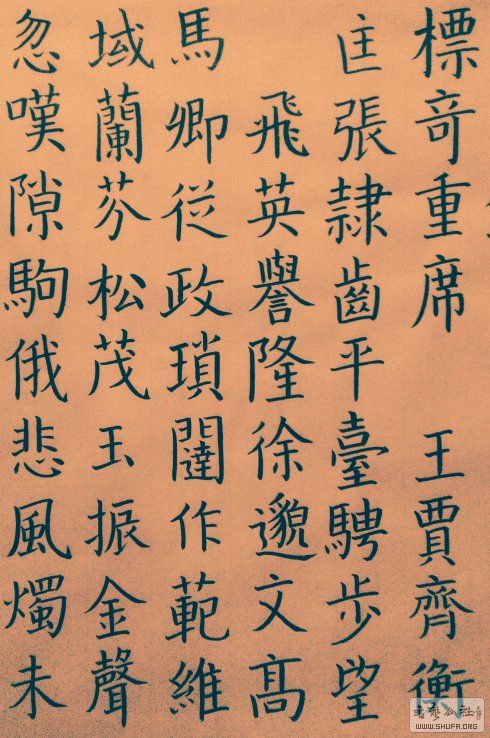 標奇重席 王賈齊衡
匡張隸齒平臺騁步望
飛英譽隆徐邈文髙
馬卿従政瑣闥作範維
域蘭芬松茂玉振金聲
忽嘆隙駒俄悲風燭未
公社
WWW.SHUFA.ORG